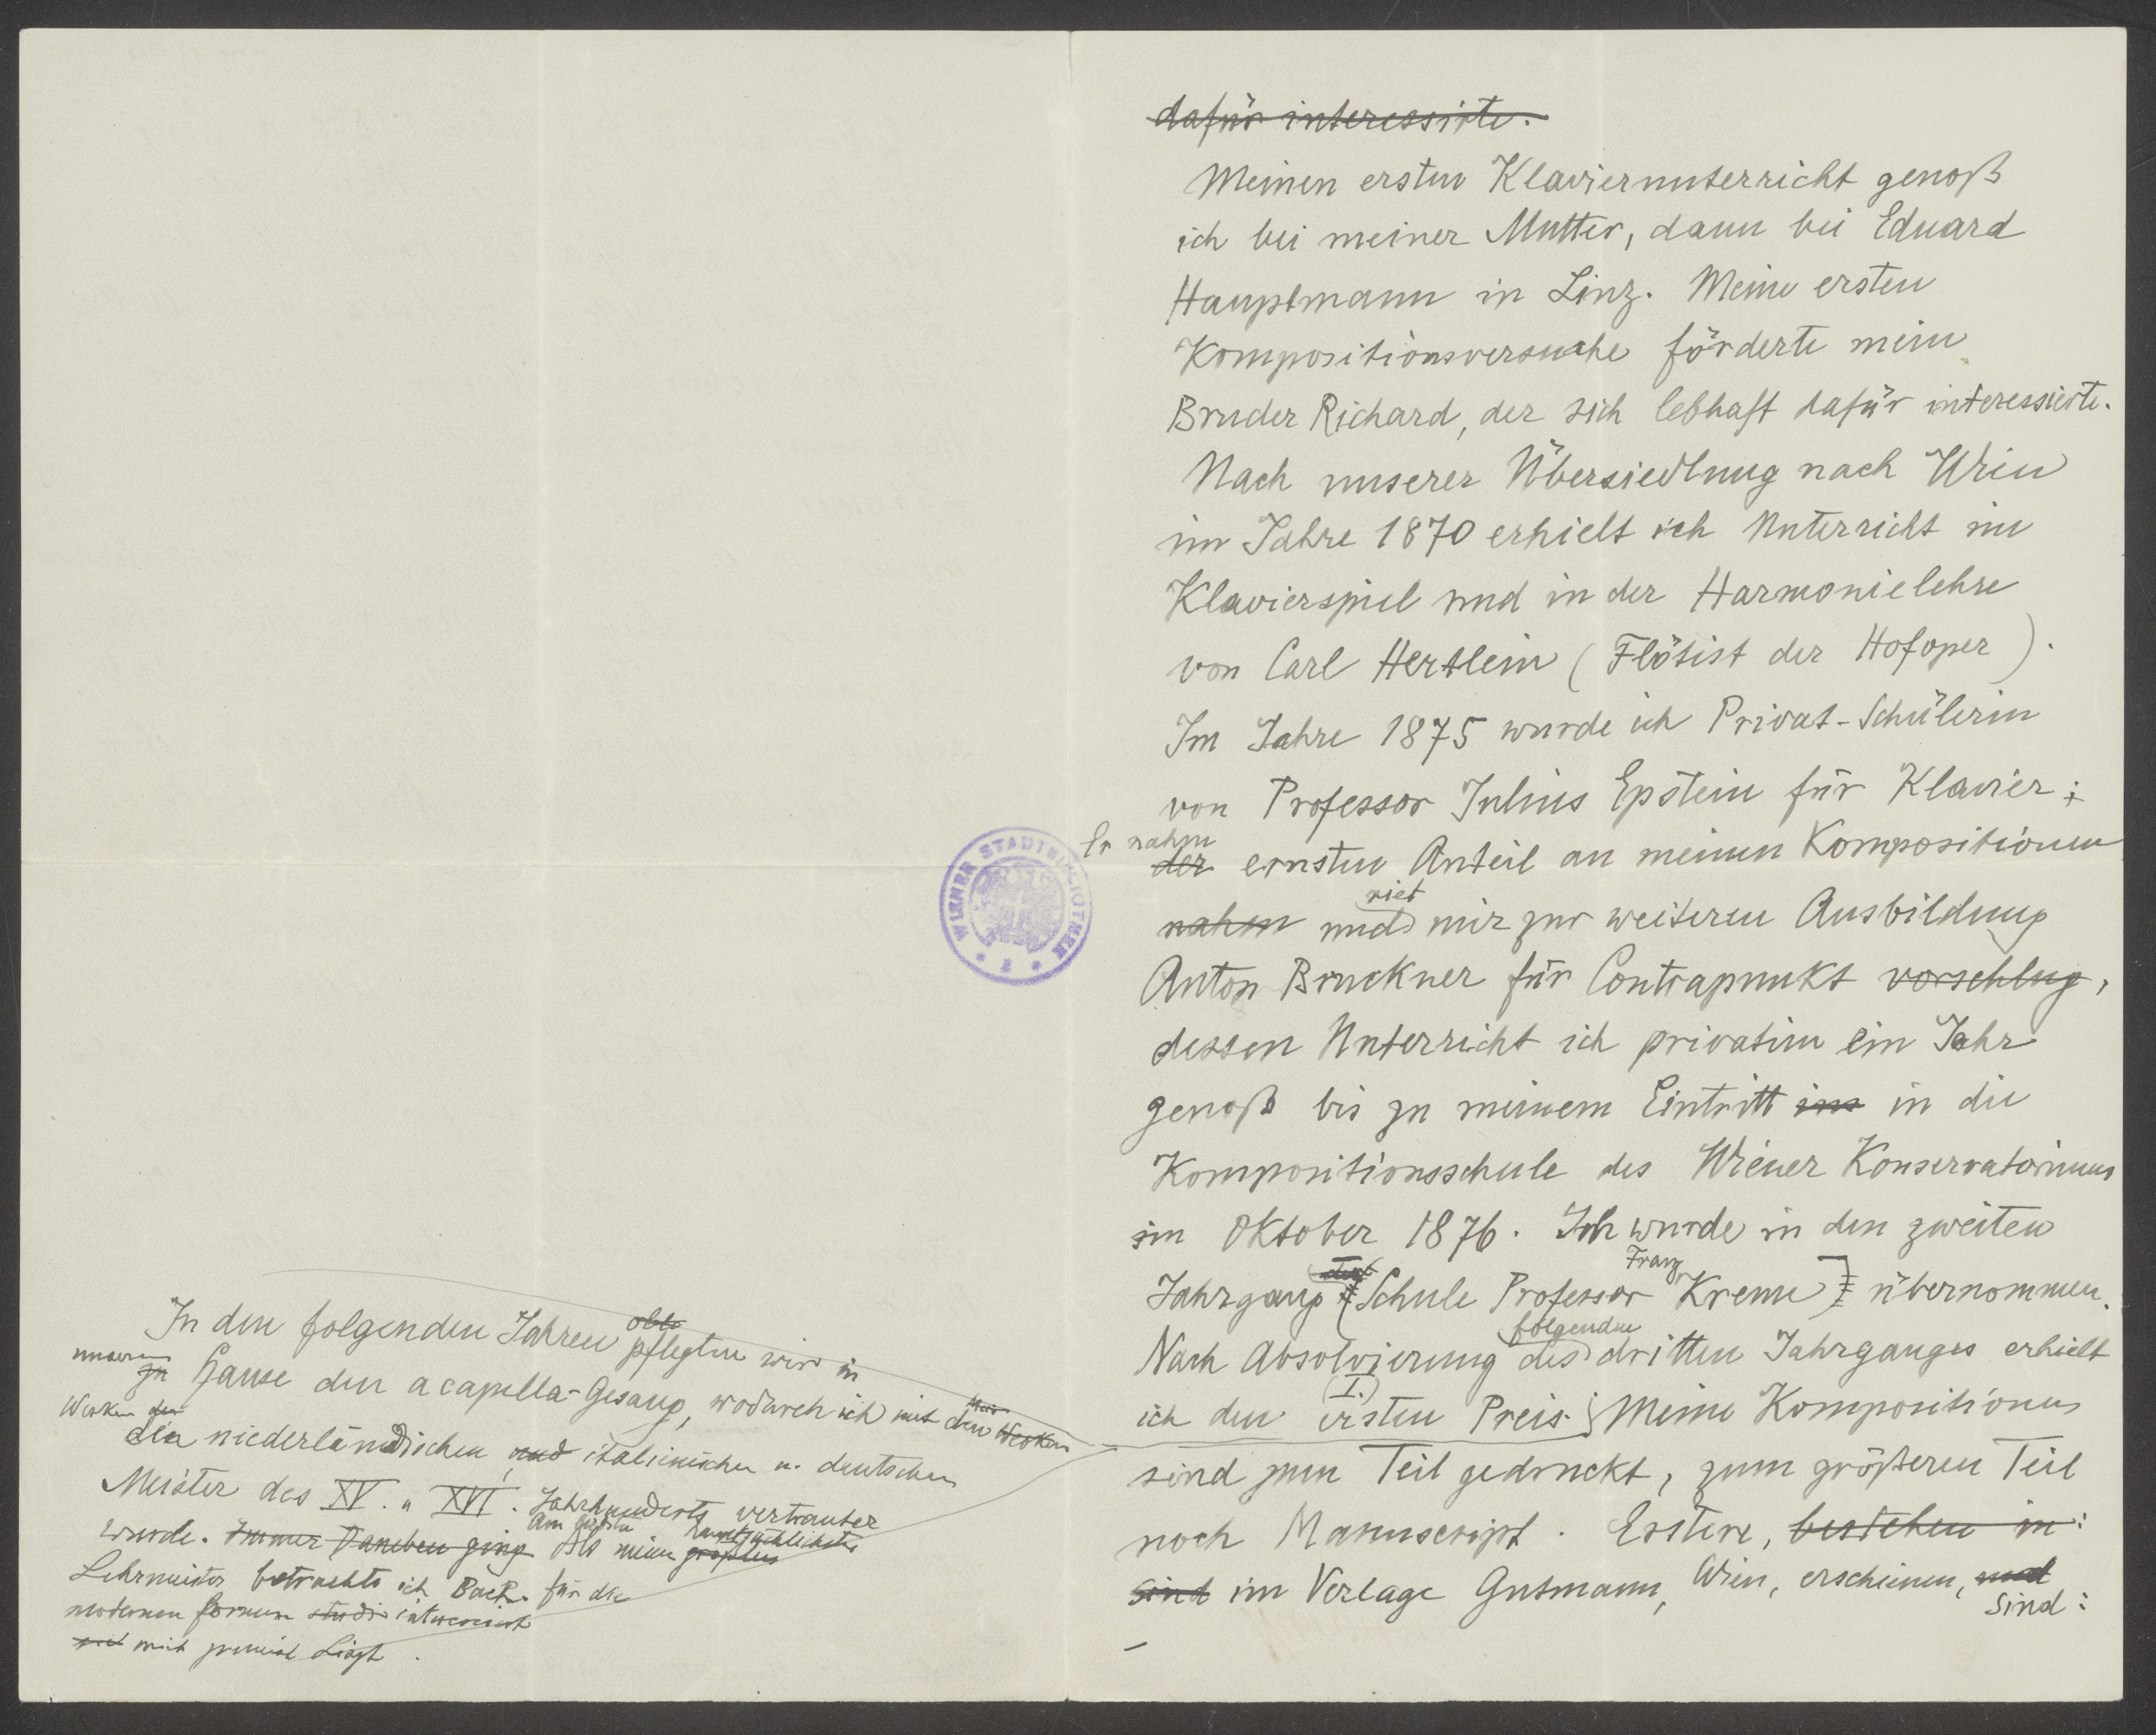 dafür interessirte.
Meinen ersten Klavierunterricht genoß
ich bei meiner Mutter, dann bei Eduard
Hauptmann in Linz. Meine ersten
Kompositionsversuche förderte mein
Bruder Richard, der sich lebhaft dafür interessierte.
Nach unserer Übersiedlung nach Wien
im Jahre 1870 erhielt ich Unterricht im
Klavierspiel und in der Harmonielehre
von Carl Hertlein (Flötist der Hofoper).
Im Jahre 1875 wurde ich Privat-Schülerin
von Professor Julius Epstein für Klavier;
Er nahm
der ernsten Anteil an meinen Kompositionen
riet
nahm und mir zur weiteren Ausbildung
Anton Bruckner für Contrapunkt vorschlug,
dessen Unterricht ich privatim ein Jahr
genoß bis zu meinem Eintritt ins in die
Kompositionsschule des Wiener Konservatoriums
im Oktober 1876. Ich wurde in den zweiten
Franz
Jahrgang (Schule Professor Krenn) übernommen.
folgenden
Nach Absolvierung des dritten Jahrganges erhielt
(I.)
ich den ersten Preis. Meine Kompositionen
sind zum Teil gedruckt, zum größeren Teil
noch Manuscript. Erstere, bestehen in:
sind im Verlage Gutmann, Wien, erschienen, und
sind:
WIENER STADTBIBLIOTHEK
In den folgenden Jahren pflegten wir in
unserem
zu Hause den a capella-Gesang, wodurch ich mit den Werken
Werken der
die niederländischen, und italienischen u. deutschen
Meister des XV. u XVI. Jahrhunderts vertrauter
wurde. Immer Daneben ging Als meinen größten
hauptsächlichsten
Lehrmeister betrachte ich Bach. für die
modernen Formen studi interessirt
mich zumeist Liszt.